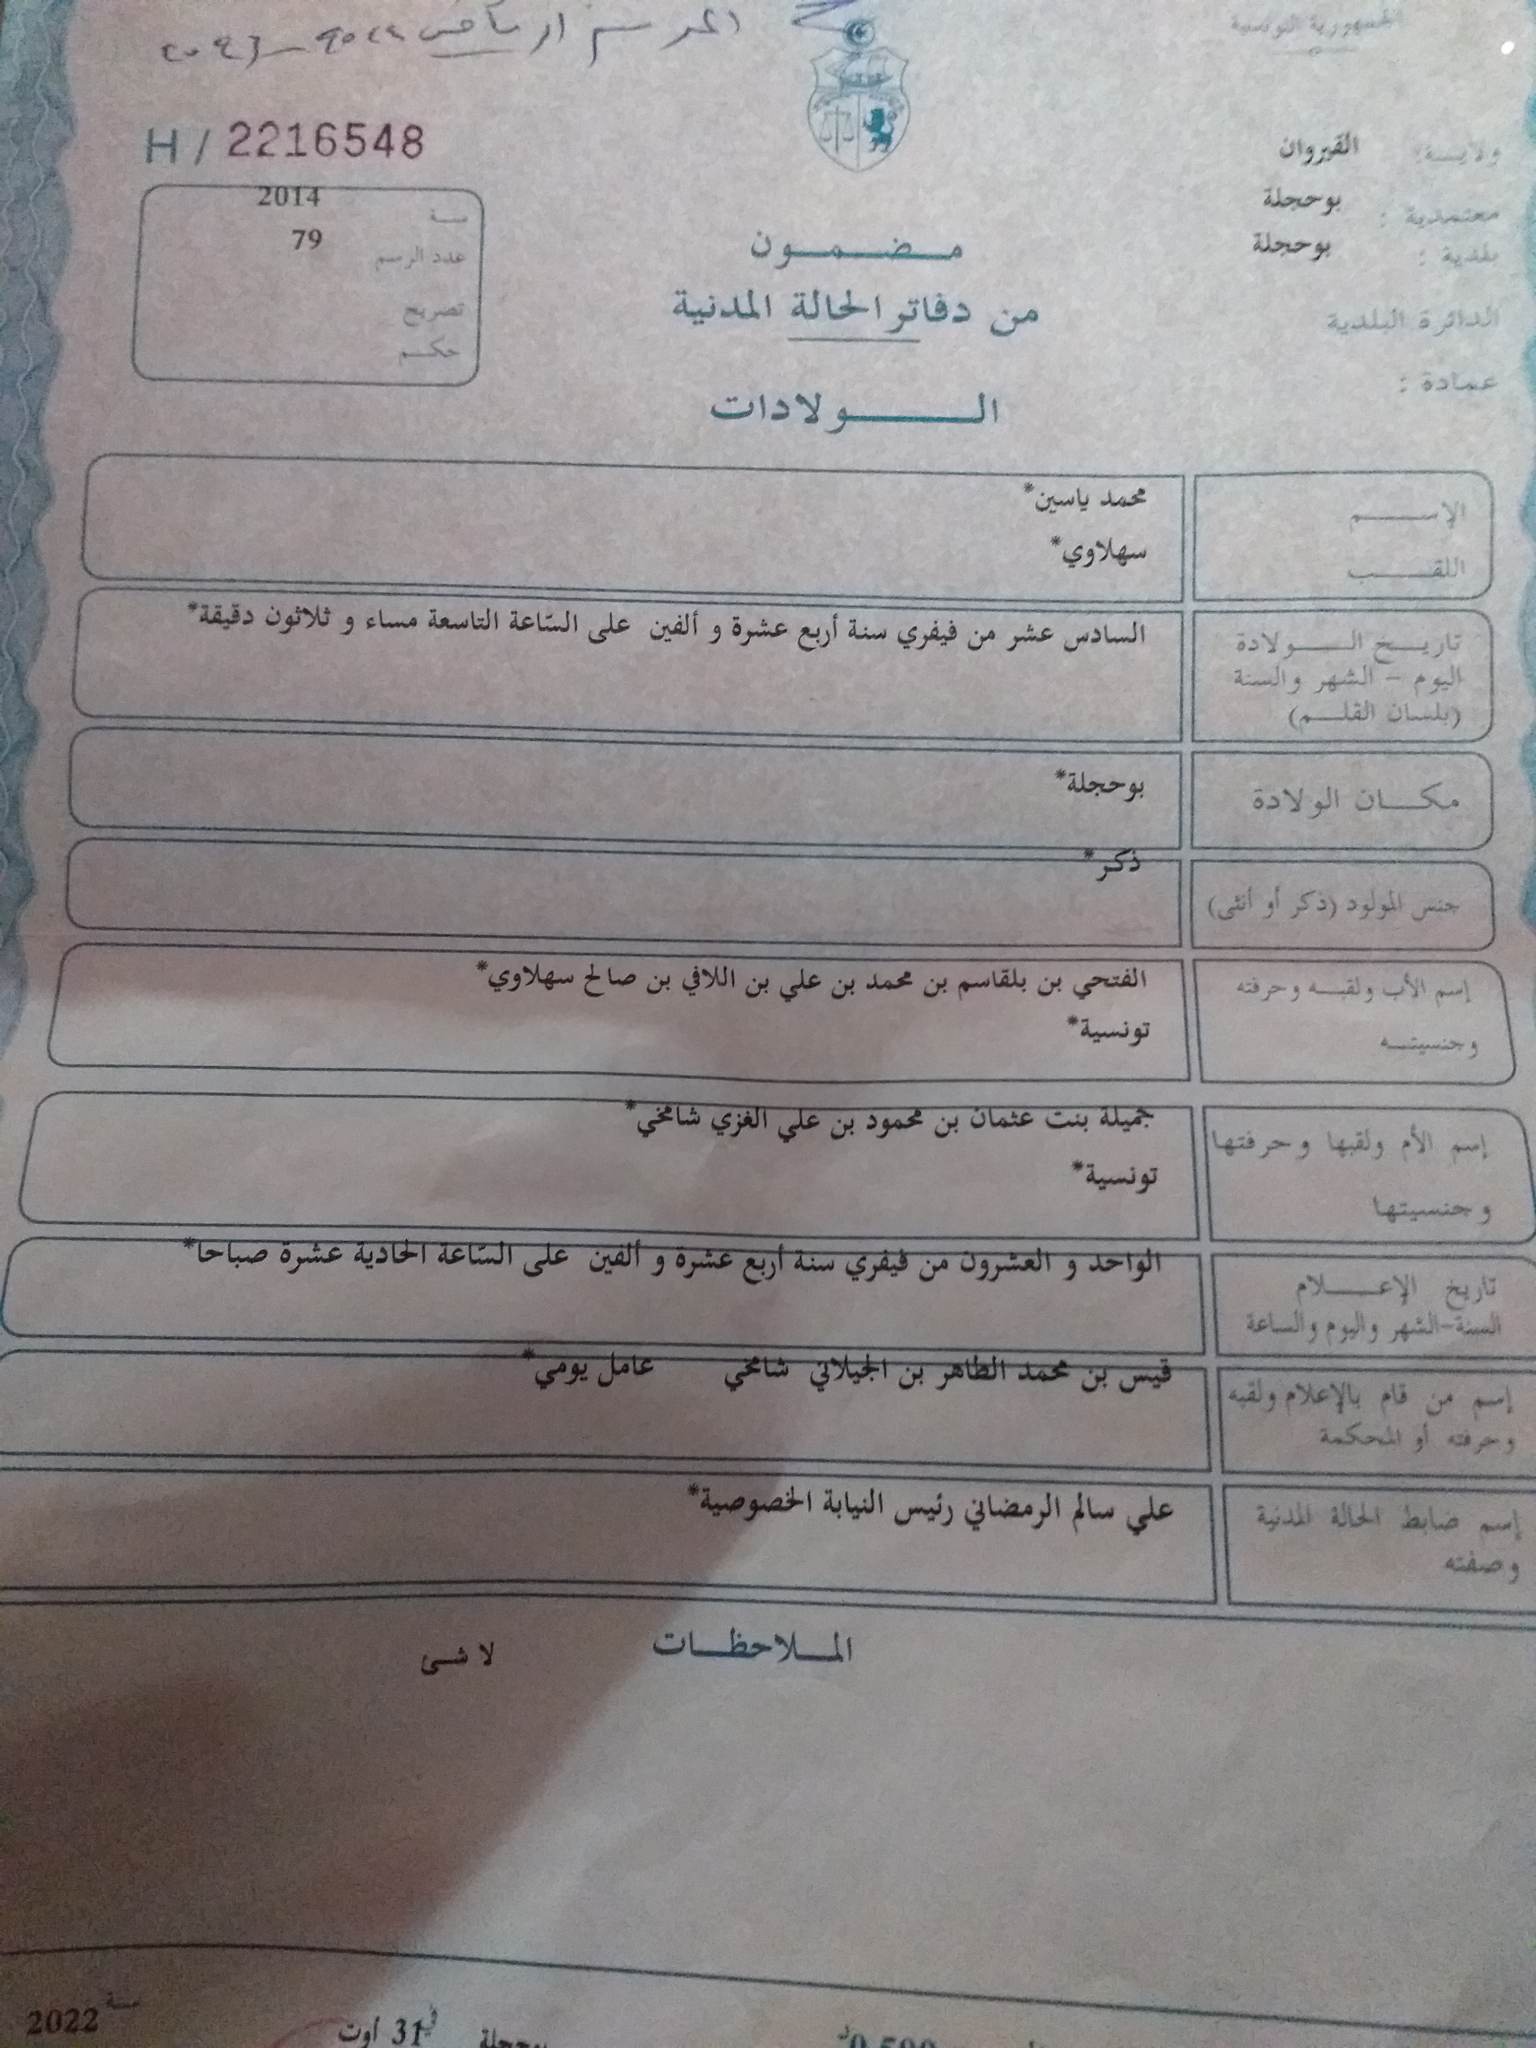 الجمهورية التونسية
2022 - 2023
H / 2216548
ولايــة: القيروان
معتمدية : بوحجلة
بلدية : بوحجلة
الدائرة البلدية
عمادة :
سنة 2014
عدد الرسم 79
تصريح
حكم
مضمون
من دفاتر الحالة المدنية
الولادات
الإسم محمد ياسين*
اللقب سهلاوي*
تاريخ الولادة
اليوم - الشهر والسنة
(بلسان القلم)
السادس عشر من فيفري سنة أربع عشرة و ألفين على السّاعة التاسعة مساء و ثلاثون دقيقة*
مكان الولادة بوحجلة*
جنس المولود (ذكر أو أنثى) ذكر*
إسم الأب ولقبه وحرفته
وجنسيته
الفتحي بن بلقاسم بن محمد بن علي بن اللافي بن صالح سهلاوي*
تونسية*
إسم الأم ولقبها وحرفتها
وجنسيتها
جميلة بنت عثمان بن محمود بن علي الغزي شامخي*
تونسية*
تاريخ الإعلام
السنة-الشهر واليوم والساعة
الواحد و العشرون من فيفري سنة أربع عشرة و ألفين على السّاعة الحادية عشرة صباحا*
إسم من قام بالإعلام ولقبه
وحرفته أو المحكمة
قيس بن محمد الطاهر بن الجيلاني شامخي عامل يومي*
إسم ضابط الحالة المدنية
وصفته
علي سالم الرمضاني رئيس النيابة الخصوصية*
الملاحظات لا شئ
بوحجلة في 31 أوت سنة 2022